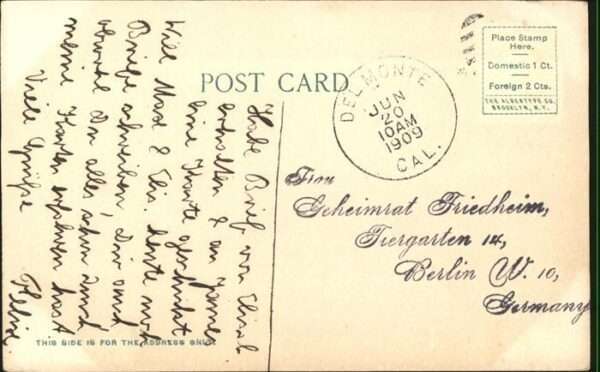 POST CARD
Place Stamp
Here.
Domestic 1 Ct.
Foreign 2 Cts.
THE ALBERTYPE CO.
BROOKLYN, N.Y.
DEL MONTE
JUN
20
10AM
1909
CAL.
Frau
Geheimrat Friedheim,
Tiergarten 14,
Berlin W. 10,
Germany
Habe Brief von
erhalten & an
eine Karte geschickt
Will & Else. heute noch
Briefe schreiben, Dir auch
obwohl Du alles schon durch
meine Karten erfahren hast
Viele Grüße
Felix
THIS SIDE IS FOR THE ADDRESS ONLY.